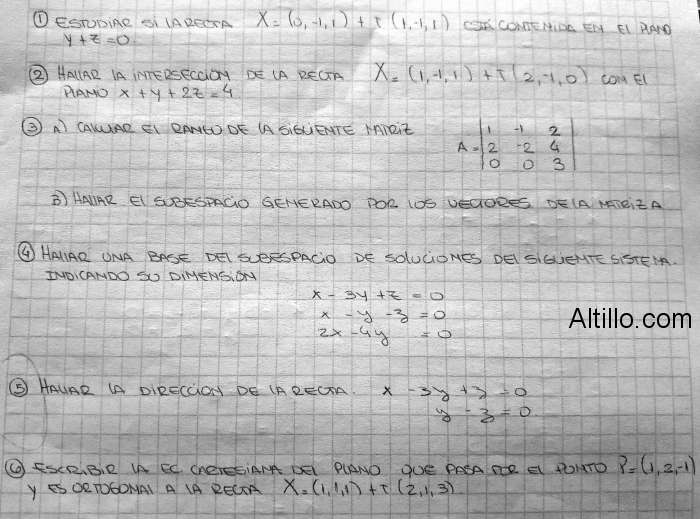 ① ESTUDIAR SI LA RECTA X = (0,-1,1) + T (1,-1,1) ESTÁ CONTENIDA EN EL PLANO
y + z = 0.
② HALLAR LA INTERSECCIÓN DE LA RECTA X = (1,-1,1) + T (2,-1,0) CON EL
PLANO x + y + 2z = 4
③ A) CALCULAR EL RANGO DE LA SIGUIENTE MATRIZ
1 -1 2
A = 2 -2 4
0 0 3
B) HALLAR EL SUBESPACIO GENERADO POR LOS VECTORES DE LA MATRIZ A
④ HALLAR UNA BASE DEL SUBESPACIO DE SOLUCIONES DEL SIGUIENTE SISTEMA.
INDICANDO SU DIMENSIÓN
x - 3y + z = 0
x - y - z = 0
2x - 4y = 0
Altillo.com
⑤ HALLAR LA DIRECCIÓN DE LA RECTA. x - 3y + z = 0
y - z = 0
⑥ ESCRIBIR LA EC CARTESIANA DEL PLANO QUE PASA POR EL PUNTO P = (1,2,-1)
Y ES ORTOGONAL A LA RECTA X = (1,1,1) + T (2,1,3)